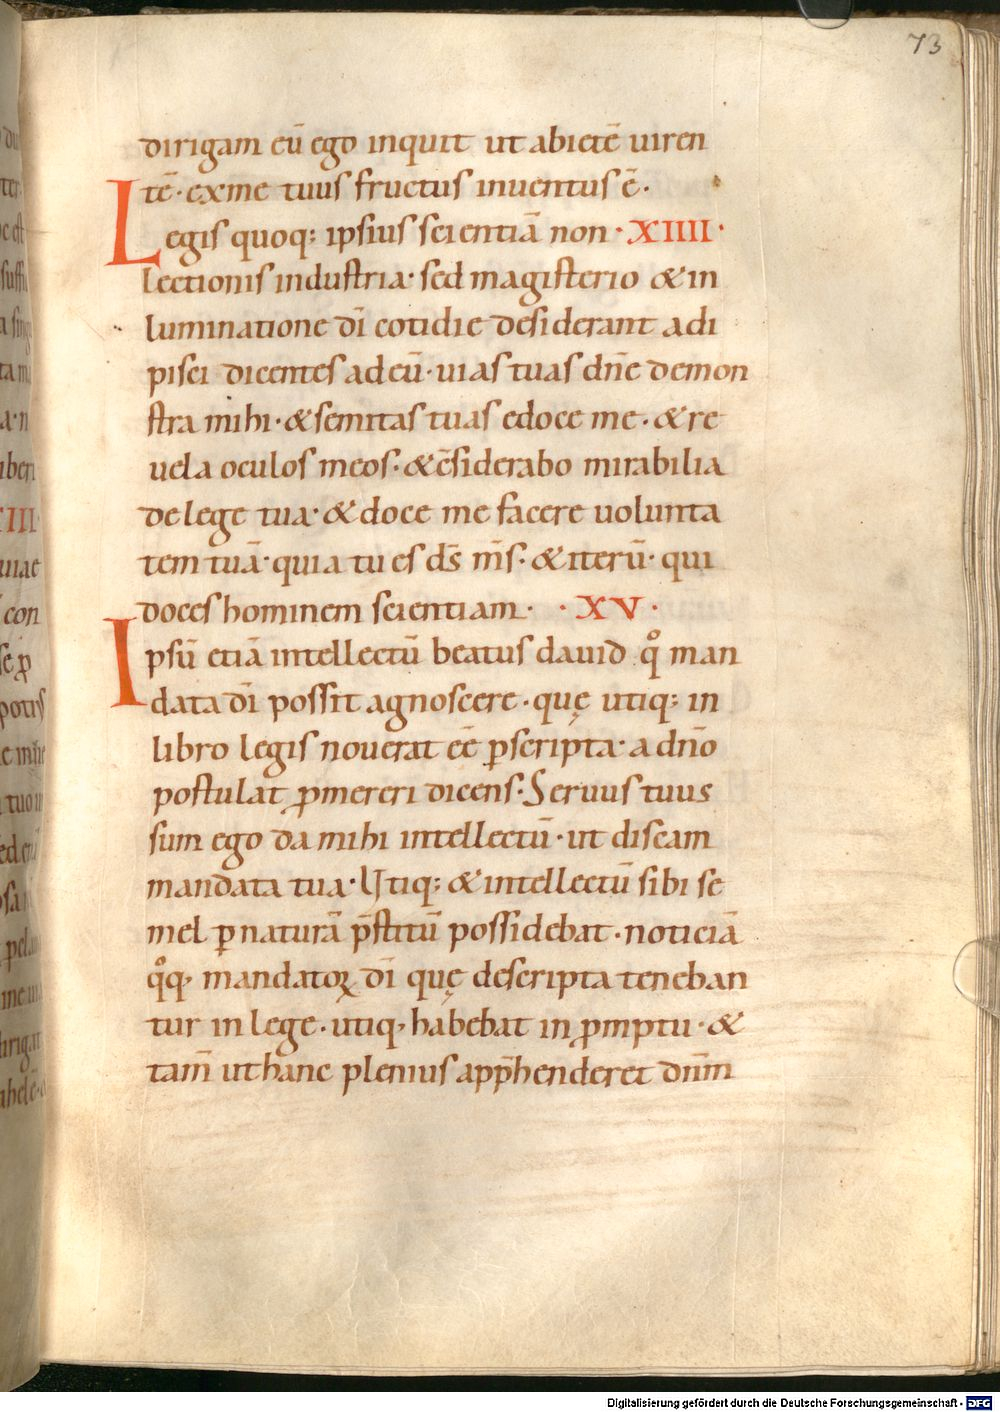 73
dirigam eū ego inquit ut abietē uiren
tē· ex me tuus fructus inuentus ē·
Legis quoq; ipsius scientiā non · XIIII ·
lectionis industria· sed magisterio & in
luminatione dī cotidie desiderant adi
pisci dicentes ad eū· uias tuas dn̄e demon
stra mihi· & semitas tuas edoce me· & re
uela oculos meos· & c̄siderabo mirabilia
de lege tua· & doce me facere uolunta
tem tuā· quia tu es ds̄ m̄s· & iterū· qui
doces hominem scientiam· · XV ·
Ipsū etiā intellectū beatus dauid q̊ man
data dī possit agnoscere· quę utiq; in
libro legis nouerat eē p̲scripta· a dn̄o
postulat ꝓmereri dicens· Seruus tuus
sum ego da mihi intellectū· ut discam
mandata tua· Utiq; & intellectū sibi se
mel ꝑ naturā p̄stitū possidebat· noticiā
q̊q; mandatoꝝ dī quę descripta teneban
tur in lege· utiq; habebat in ꝓmptu· &
tam̄ ut hanc plenius app̄henderet dn̄m
Digitalisierung gefördert durch die Deutsche Forschungsgemeinschaft - DFG